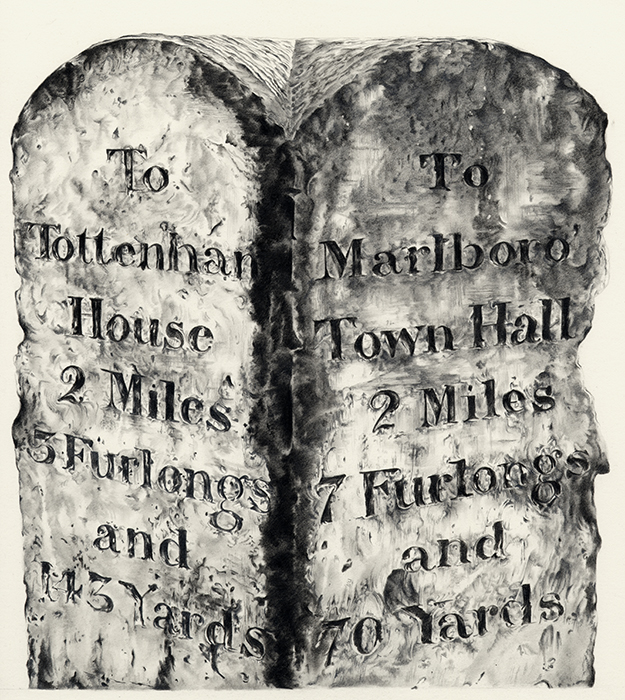 To
Tottenham
House
2 Miles
5 Furlongs
and
113 Yards
To
Marlboro'
Town Hall
2 Miles
7 Furlongs
and
70 Yards